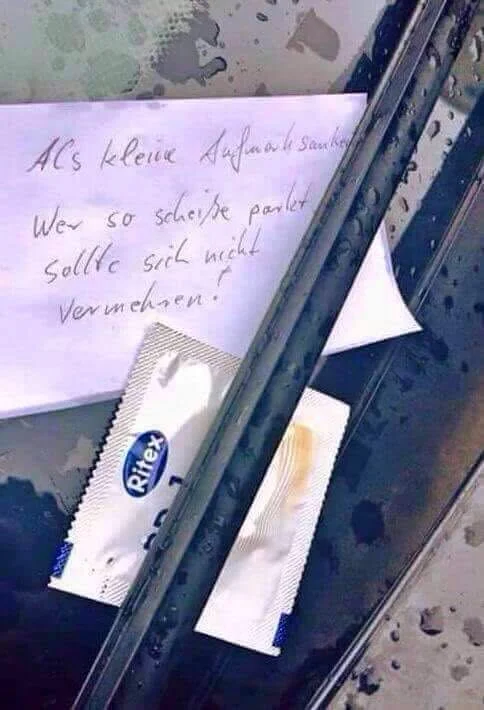 Als kleine Aufmerksamkeit
Wer so scheiße parkt
sollte sich nicht
vermehren!
Ritex